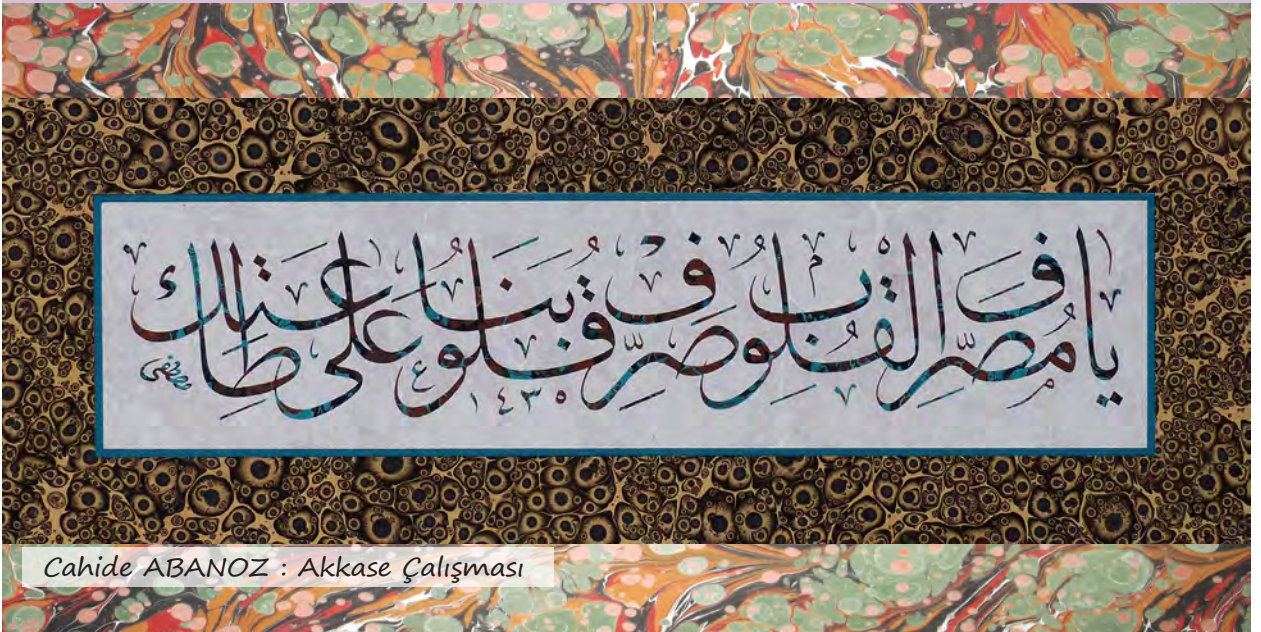 يا مصرف القلوب صرف قلوبنا على طاعتك
١٤٣٥
Cahide ABANOZ : Akkase Çalışması